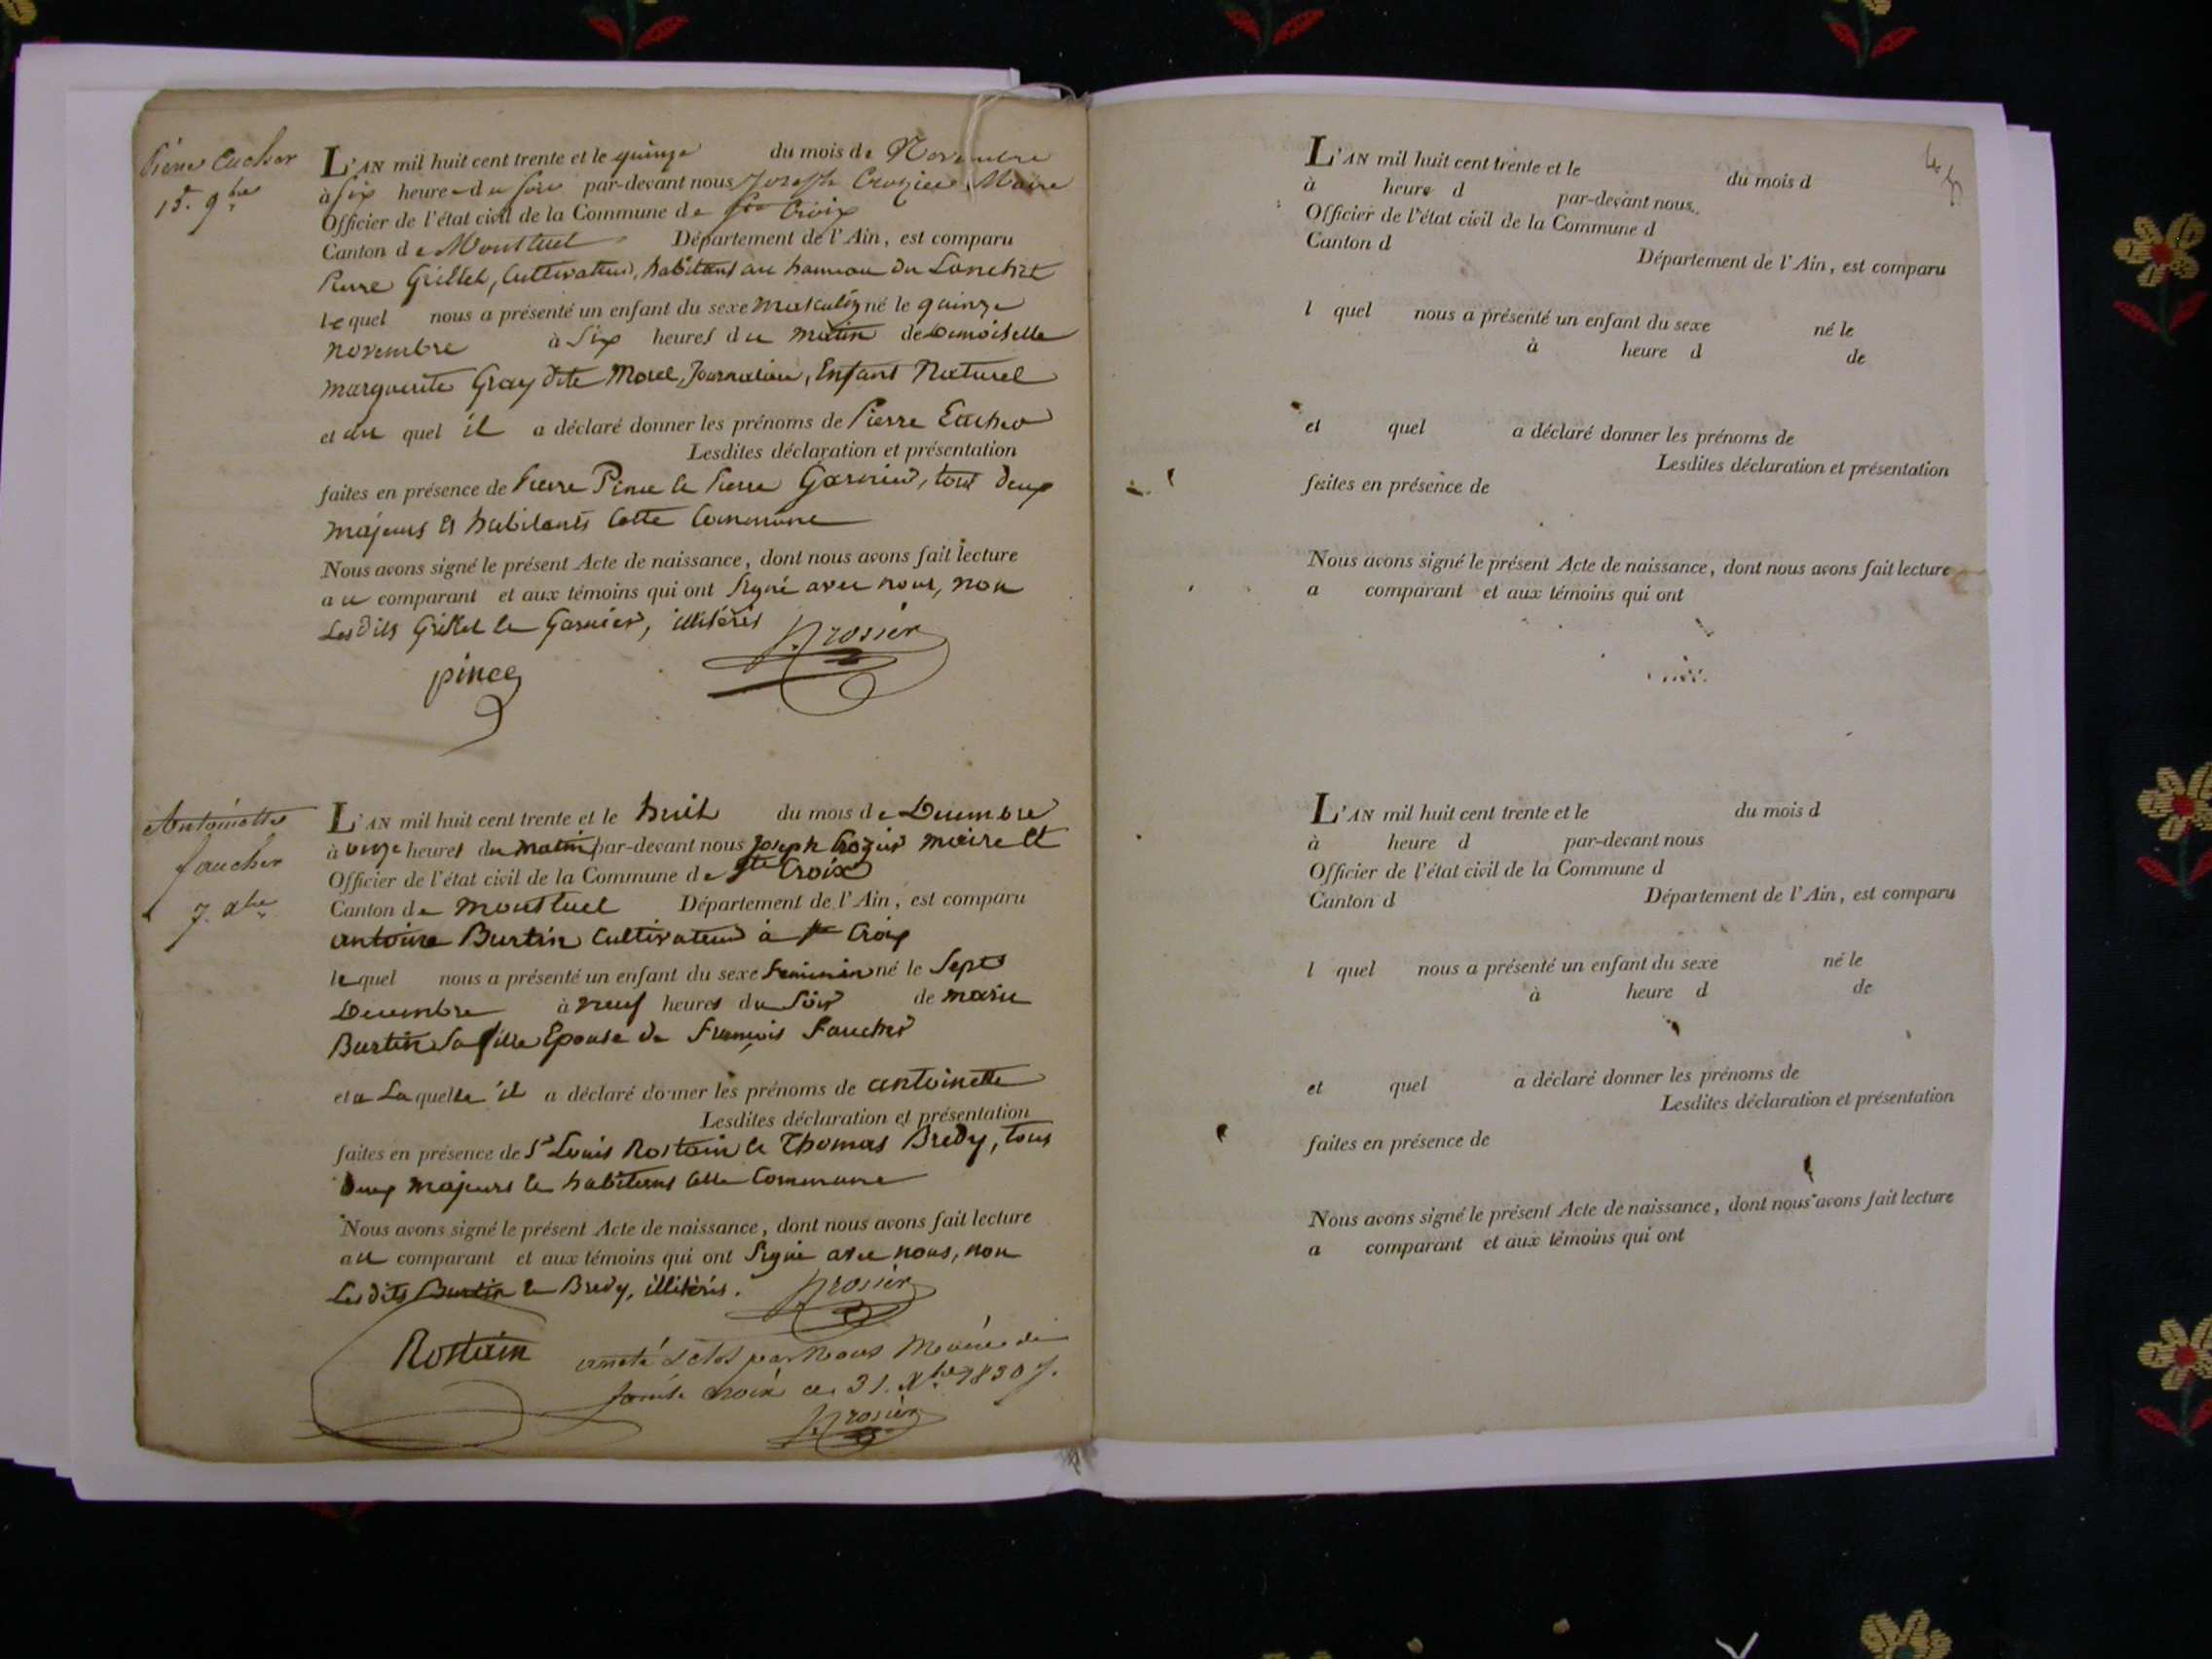 Pierre Eucher
15. 9bre
L'AN mil huit cent trente et le quinze du mois de Novembre
à Six heure du soir par-devant nous Joseph Crozier, Maire
Officier de l'état civil de la Commune de Ste Croix
Canton de Montluel Département de l'Ain, est comparu
Pierre Grillet, Cultivateur, habitant au hameau du Lonchet
lequel nous a présenté un enfant du sexe Masculin né le quinze
novembre à Six heures du matin de Demoiselle
marguerite Gray dite Morel, Journalière, Enfant Naturel
et au quel il a déclaré donner les prénoms de Pierre Eucher
Lesdites déclaration et présentation
faites en présence de Pierre Pince & Pierre Garnier, tout deux
majeurs & habitants Cette Commune
Nous avons signé le présent Acte de naissance, dont nous avons fait lecture
au comparant et aux témoins qui ont Signé avec nous, non
Lesdits Grillet & Garnier, illitérés
Crosier
pince
Antoinette
faucher
7. xbre
L'AN mil huit cent trente et le huit du mois de Decembre
à onze heures du matin par-devant nous Joseph Crozier maire Et
Officier de l'état civil de la Commune de Ste Croix
Canton de Montluel Département de l'Ain, est comparu
antoine Burtin Cultivateur à Ste Croix
lequel nous a présenté un enfant du sexe Feminin né le Sept
Decembre à neuf heures du Soir de marie
Burtin Sa fille Epouse de François Faucher
et a La quelle il a déclaré donner les prénoms de antoinette
Lesdites déclaration et présentation
faites en présence de Sr Louis Rostain & Thomas Bredy, tous
Deux majeurs & habitans Cette Commune
Nous avons signé le présent Acte de naissance, dont nous avons fait lecture
au comparant et aux témoins qui ont Signé avec nous, non
Les dits Burtin & Bredy, illitérés.
Crosier
Rostain
arreté & clos par Nous Maire de
sainte croix ce 31. Xbre 1830
Crosier
L'AN mil huit cent trente et le du mois d
à heure d par-devant nous
Officier de l'état civil de la Commune d
Canton d Département de l'Ain, est comparu
l quel nous a présenté un enfant du sexe né le
à heure d de
et quel a déclaré donner les prénoms de
Lesdites déclaration et présentation
faites en présence de
Nous avons signé le présent Acte de naissance, dont nous avons fait lecture
a comparant et aux témoins qui ont
L'AN mil huit cent trente et le du mois d
à heure d par-devant nous
Officier de l'état civil de la Commune d
Canton d Département de l'Ain, est comparu
l quel nous a présenté un enfant du sexe né le
à heure d de
et quel a déclaré donner les prénoms de
Lesdites déclaration et présentation
faites en présence de
Nous avons signé le présent Acte de naissance, dont nous avons fait lecture
a comparant et aux témoins qui ont